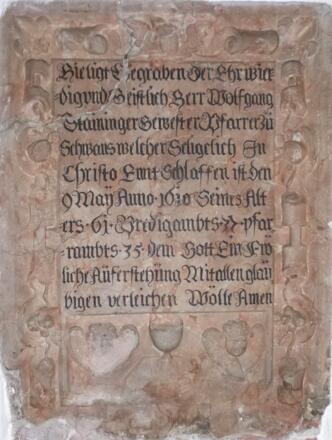 Hie ligt Begraben Der Ehrwier
dig vnd Geistlich Herr Wolfgang
Staininger Gewester Pfarrer zu
Schwans welcher Seligelich In
Christo Ent Schlaffen ist den
9 Maÿ Anno 1630 Seines Alt
ers 61 Predigambts 37 pfar
rambts 35 dem Gott Ein Frö
liche Auferstehung Mit allen glau
bigen verleichen Wölle Amen